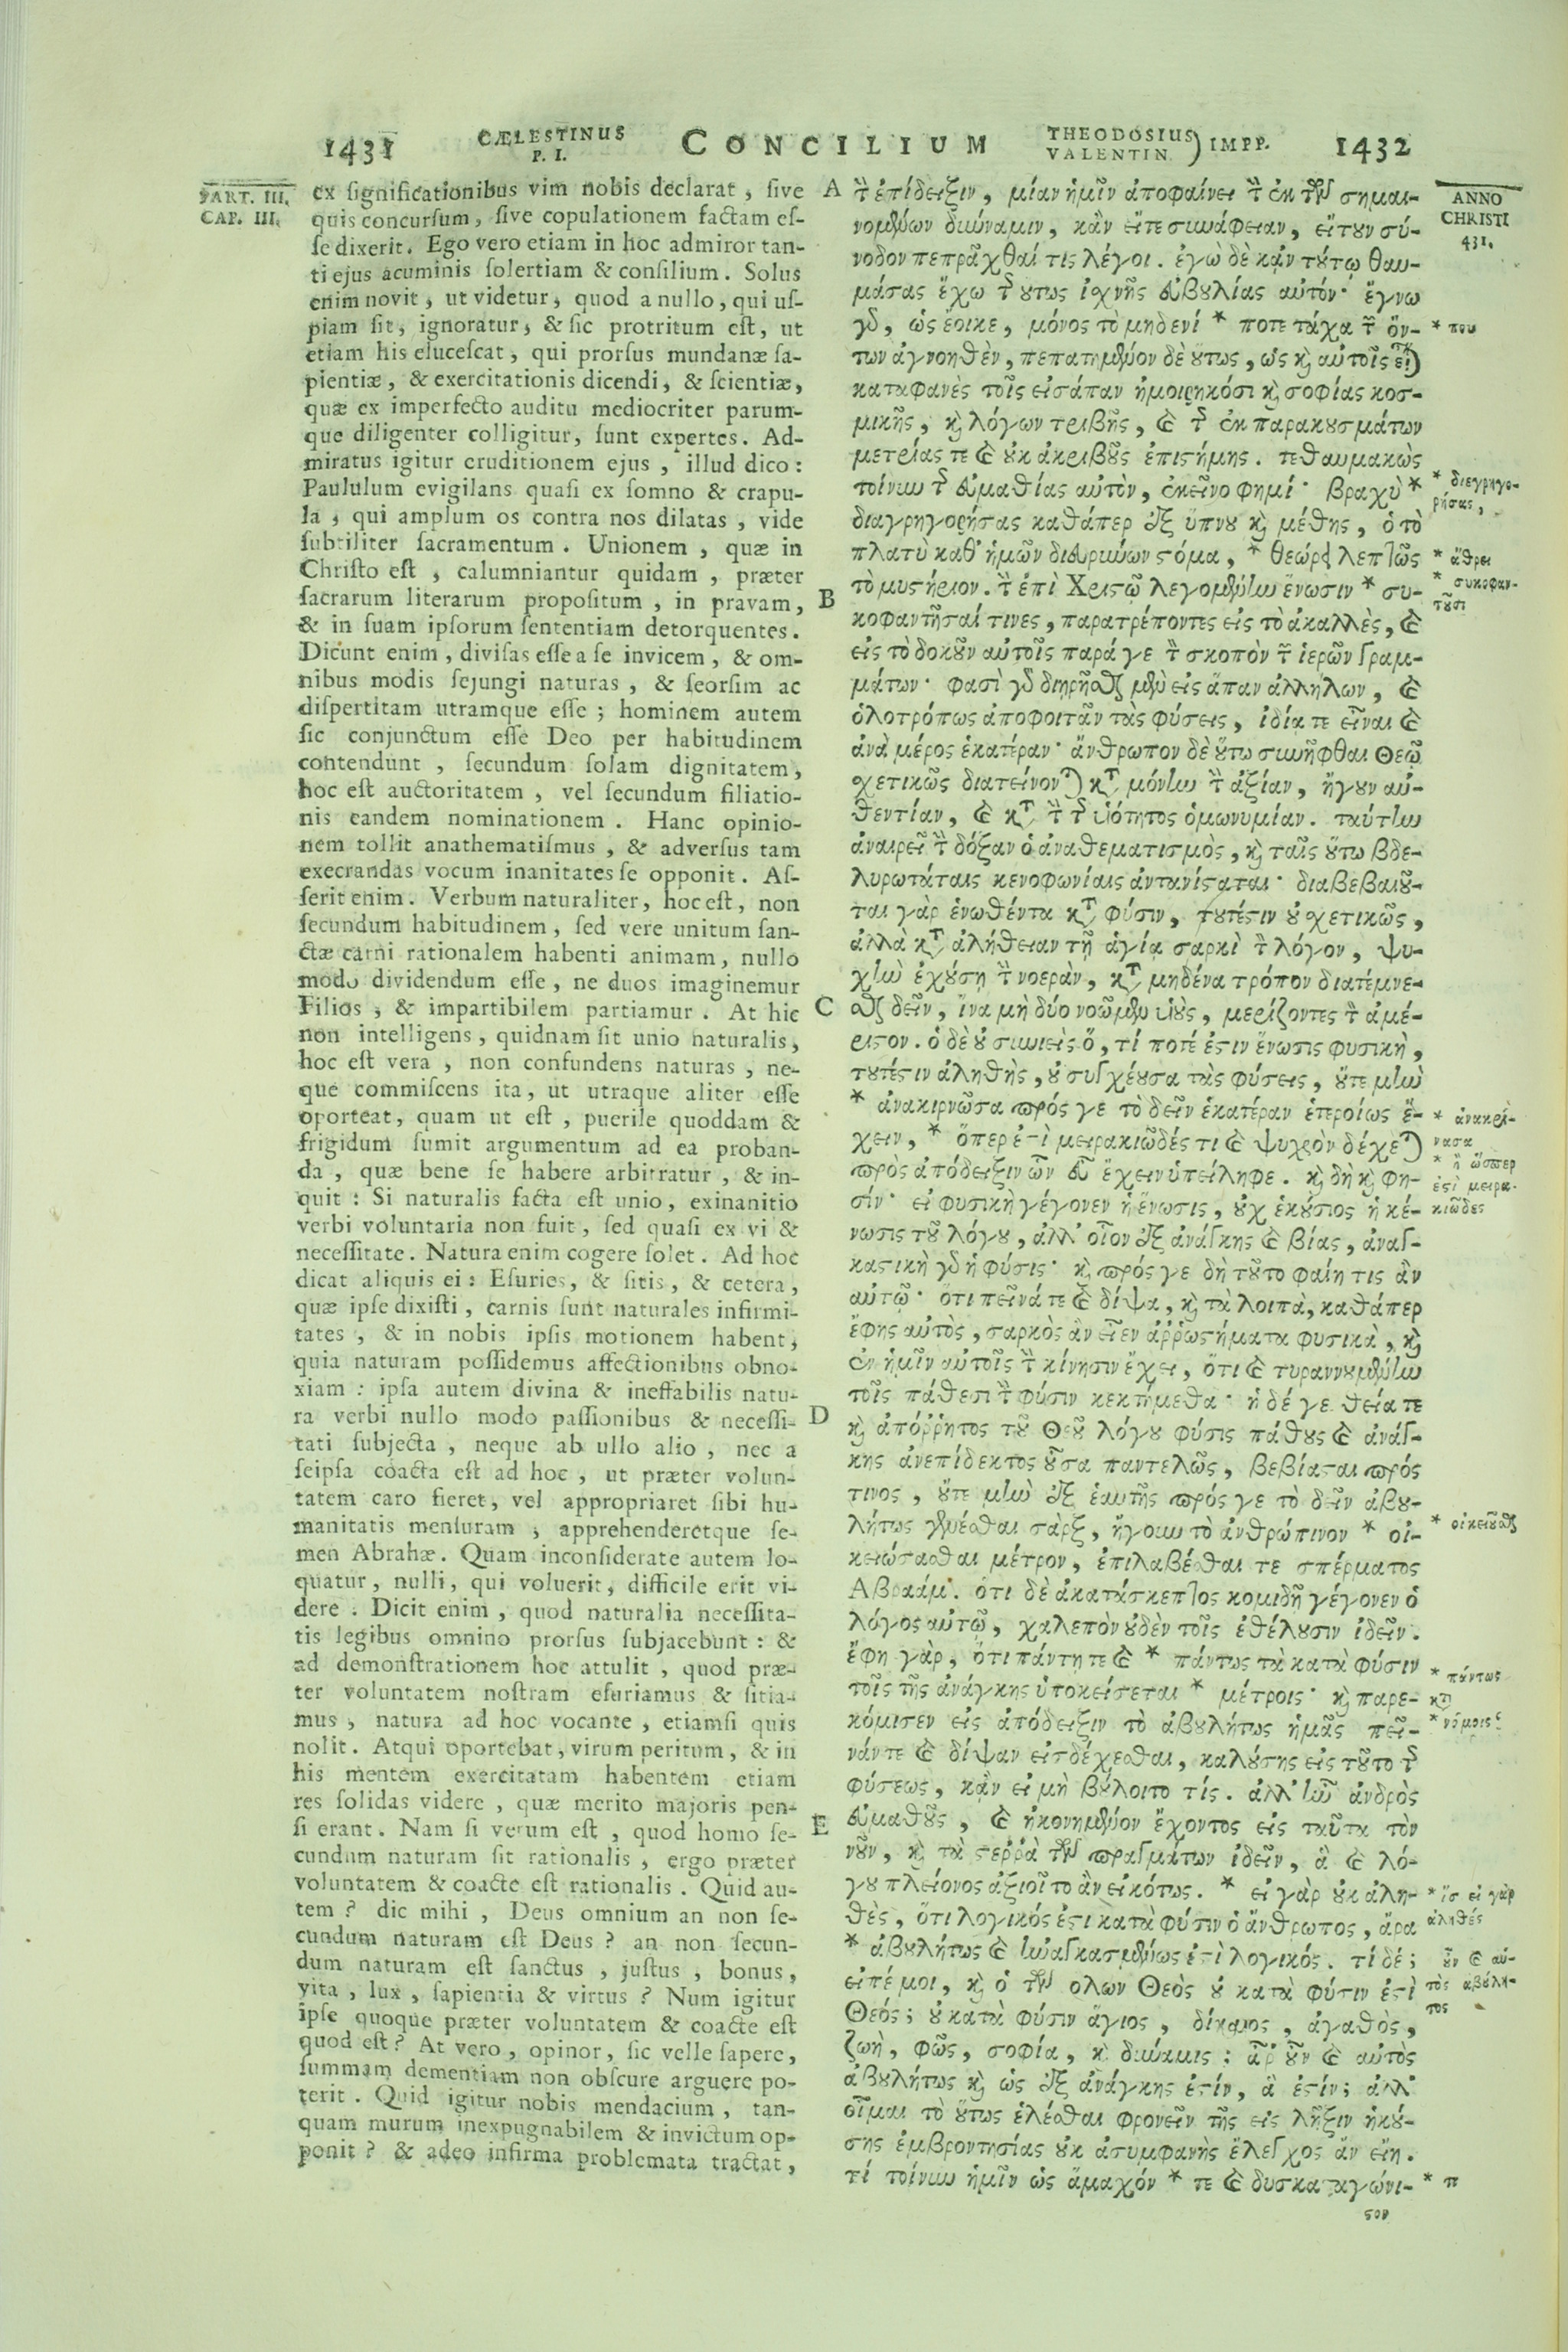 1431
CÆLESTINUS
P. I.
CONCILIUM
THEODOSIUS
VALENTIN.
) IMPP.
1432
PART. III.
CAP. III.
ex significationibus vim nobis declarat, sive
quis concursum, sive copulationem factam es-
se dixerit. Ego vero etiam in hoc admiror tan-
ti ejus acuminis solertiam & consilium. Solus
enim novit, ut videtur, quod a nullo, qui us-
piam sit, ignoratur, & sic protritum est, ut
etiam his elucescat, qui prorsus mundanæ sa-
pientiæ, & exercitationis dicendi, & scientiæ,
quæ ex imperfecto auditu mediocriter parum-
que diligenter colligitur, sunt expertes. Ad-
miratus igitur eruditionem ejus, illud dico:
Paululum evigilans quasi ex somno & crapu-
la, qui amplum os contra nos dilatas, vide
subtiliter sacramentum. Unionem, quæ in
Christo est, calumniantur quidam, præter
sacrarum literarum propositum, in pravam,
& in suam ipsorum sententiam detorquentes.
Dicunt enim, divisas esse a se invicem, & om-
nibus modis sejungi naturas, & seorsim ac
dispertitam utramque esse; hominem autem
sic conjunctum esse Deo per habitudinem
contendunt, secundum solam dignitatem,
hoc est auctoritatem, vel secundum filiatio-
nis eandem nominationem. Hanc opinio-
nem tollit anathematismus, & adversus tam
execrandas vocum inanitates se opponit. As-
serit enim. Verbum naturaliter, hoc est, non
secundum habitudinem, sed vere unitum san-
ctæ carni rationalem habenti animam, nullo
modo dividendum esse, ne duos imaginemur
Filios, & impartibilem partiamur. At hic
non intelligens, quidnam sit unio naturalis,
hoc est vera, non confundens naturas, ne-
que commiscens ita, ut utraque aliter esse
oporteat, quam ut est, puerile quoddam &
frigidum sumit argumentum ad ea proban-
da, quæ bene se habere arbitratur, & in-
quit: Si naturalis facta est unio, exinanitio
verbi voluntaria non fuit, sed quasi ex vi &
necessitate. Natura enim cogere solet. Ad hoc
dicat aliquis ei: Esuries, & sitis, & cetera,
quæ ipse dixisti, carnis sunt naturales infirmi-
tates, & in nobis ipsis motionem habent,
quia naturam possidemus affectionibus obno-
xiam: ipsa autem divina & ineffabilis natu-
ra verbi nullo modo passionibus & necessi-
tati subjecta, neque ab ullo alio, nec a
seipsa coacta est ad hoc, ut præter volun-
tatem caro fieret, vel appropriaret sibi hu-
manitatis mensuram, apprehenderetque se-
men Abrahæ. Quam inconsiderate autem lo-
quatur, nulli, qui voluerit, difficile erit vi-
dere. Dicit enim, quod naturalia necessita-
tis legibus omnino prorsus subjacebunt: &
ad demonstrationem hoc attulit, quod præ-
ter voluntatem nostram esuriamus & sitia-
mus, natura ad hoc vocante, etiamsi quis
nolit. Atqui oportebat, virum peritum, & in
his mentem exercitatam habentem etiam
res solidas videre, quæ merito majoris pen-
si erant. Nam si verum est, quod homo se-
cundum naturam sit rationalis, ergo præter
voluntatem & coacte est rationalis. Quid au-
tem? dic mihi, Deus omnium an non se-
cundum naturam est Deus? an non secun-
dum naturam est sanctus, justus, bonus,
vita, lux, sapientia & virtus? Num igitur
ipse quoque præter voluntatem & coacte est
quod est? At vero, opinor, sic velle sapere,
summam dementiam non obscure arguere po-
terit. Quid igitur nobis mendacium, tan-
quam murum inexpugnabilem & invictum op-
ponit? & adeo infirma problemata tractat,
A
B
C
D
E
τὴν ἐπίδειξιν, μίαν ἡμῖν ἀποφαίνει τὴν ἐκ τῶν σημαι-
νομένων δύναμιν, κἂν εἴτε συνάφειαν, εἴτουν σύ-
νοδον πεπρᾶχθαί τις λέγοι. ἐγὼ δὲ κἀν τούτῳ θαυ-
μάσας ἔχω τῆς οὕτως ἰσχνῆς εὐβουλίας αὐτόν· ἔγνω
γὰρ, ὡς ἔοικε, μόνος τὸ μηδενί * ποτε τάχα τῶν ὄν-
των ἀγνοηθὲν, πεπατημένον δὲ οὕτως, ὡς καὶ αὐτοῖς εἶναι
καταφανὲς τοῖς εἰσάπαν ἠμοιρηκόσι καὶ σοφίας κοσ-
μικῆς, καὶ λόγων τριβῆς, καὶ τῆς ἐκ παρακουσμάτων
μετρίας τε καὶ οὐκ ἀκριβοῦς ἐπιστήμης. τεθαυμακὼς
τοίνυν τῆς εὐμαθίας αὐτὸν, ἐκεῖνο φημί· βραχὺ *
διαγρηγορήσας καθάπερ ἐξ ὕπνου καὶ μέθης, ὁ τὸ
πλατὺ καθ' ἡμῶν διευρύνων στόμα, * θεώρει λεπτῶς
τὸ μυστήριον. τὴν ἐπὶ Χριστῷ λεγομένην ἕνωσιν * συ-
κοφαντῆσαί τινες, παρατρέποντες εἰς τὸ ἀκαλλὲς, καὶ
εἰς τὸ δοκοῦν αὐτοῖς παρά γε τὸν σκοπὸν τῶν ἱερῶν γραμ-
μάτων· φασὶ γὰρ διῃρῆσθαι μὲν εἰς ἅπαν ἀλλήλων, καὶ
ὁλοτρόπως ἀποφοιτᾶν τὰς φύσεις, ἰδίᾳ τε εἶναι καὶ
ἀνὰ μέρος ἑκατέραν· ἄνθρωπον δὲ οὕτω συνῆφθαι Θεῷ
σχετικῶς διατείνονται κατὰ μόνην τὴν ἀξίαν, ἤγουν αὐ-
θεντίαν, καὶ κατὰ τὴν τῆς υἱότητος ὁμωνυμίαν. ταύτην
ἀναιρεῖ τὴν δόξαν ὁ ἀναθεματισμὸς, καὶ ταῖς οὕτω βδε-
λυρωτάταις κενοφωνίαις ἀντανίσταται· διαβεβαιοῦ-
ται γὰρ ἑνωθέντα κατὰ φύσιν, τουτέστιν οὐ σχετικῶς,
ἀλλὰ κατὰ ἀλήθειαν τῇ ἁγίᾳ σαρκὶ τὸν λόγον, ψυ-
χὴν ἐχούσῃ τὴν νοερὰν, κατὰ μηδένα τρόπον διατέμνε-
σθαι δεῖν, ἵνα μὴ δύο νοῶμεν υἱοὺς, μερίζοντες τὸν ἀμέ-
ριστον. ὁ δὲ οὐ συνιεὶς ὅ, τί ποτέ ἐστιν ἕνωσις φυσικὴ,
τουτέστιν ἀληθὴς, οὐ συγχέουσα τὰς φύσεις, οὔτε μὴν
* ἀνακιρνῶσα πρός γε τὸ δεῖν ἑκατέραν ἑτεροίως ἔ-
χειν, * ὅπερ ἐστὶ μειρακιῶδές τι καὶ ψυχρὸν δέχεται
πρὸς ἀπόδειξιν ὧν εὖ ἔχειν ὑπείληφε. καὶ δὴ καὶ φη-
σίν· εἰ φυσικὴ γέγονεν ἡ ἕνωσις, οὐχ ἑκούσιος ἡ κέ-
νωσις τοῦ λόγου, ἀλλ' οἷον ἐξ ἀνάγκης καὶ βίας, ἀναγ-
καστικὴ γὰρ ἡ φύσις· καὶ πρός γε δὴ τοῦτο φαίη τις ἂν
αὐτῷ· ὅτι πεῖνά τε καὶ δίψα, καὶ τὰ λοιπὰ, καθάπερ
ἔφης αὐτὸς, σαρκὸς ἂν εἶεν ἀῤῥωστήματα φυσικὰ, καὶ
ἐν ἡμῖν αὐτοῖς τὴν κίνησιν ἔχει, ὅτι καὶ τυραννουμένην
τοῖς πάθεσι τὴν φύσιν κεκτήμεθα· ἡ δέ γε θεία τε
καὶ ἀπόῤῥητος τοῦ Θεοῦ λόγου φύσις πάθους καὶ ἀνάγ-
κης ἀνεπίδεκτος οὖσα παντελῶς, βεβίασται πρός
τινος, οὔτε μὴν ἐξ ἑαυτῆς πρός γε τὸ δεῖν ἀβου-
λήτως γενέσθαι σὰρξ, ἤγουν τὸ ἀνθρώπινον * οἰ-
κειώσασθαι μέτρον, ἐπιλαβέσθαι τε σπέρματος
Ἀβραάμ. ὅτι δὲ ἀκατάσκεπτος κομιδῇ γέγονεν ὁ
λόγος αὐτῷ, χαλεπὸν οὐδὲν τοῖς ἐθέλουσιν ἰδεῖν.
ἔφη γὰρ, ὅτι πάντῃ τε καὶ * πάντως τὰ κατὰ φύσιν
τοῖς τῆς ἀνάγκης ὑποκείσεται * μέτροις· καὶ παρε-
κόμισεν εἰς ἀπόδειξιν τὸ ἀβουλήτως ἡμᾶς πεῖ-
νάν τε καὶ δίψαν εἰσδέχεσθαι, καλούσης εἰς τοῦτο τῆς
φύσεως, κἂν εἰ μὴ βούλοιτο τίς. ἀλλ' ἦν ἀνδρὸς
εὐμαθοῦς, καὶ ἠκονημένον ἔχοντος εἰς ταῦτα τὸν
νοῦν, καὶ τὰ στεῤῥὰ τῶν πραγμάτων ἰδεῖν, ἃ καὶ λό-
γου πλείονος ἀξιοῖτο ἂν εἰκότως. * εἰ γὰρ οὐκ ἀλη-
θὲς, ὅτι λογικός ἐστι κατὰ φύσιν ὁ ἄνθρωπος, ἄρα
* ἀβουλήτως καὶ ἠναγκασμένως ἐστὶ λογικός. τί δέ;
εἰπέ μοι, καὶ ὁ τῶν ὅλων Θεὸς οὐ κατὰ φύσιν ἐστὶ
Θεός; οὐ κατὰ φύσιν ἅγιος, δίκαιος, ἀγαθὸς,
ζωὴ, φῶς, σοφία, καὶ δύναμις; ἆρ' οὖν καὶ αὐτὸς
ἀβουλήτως καὶ ὡς ἐξ ἀνάγκης ἐστίν, ἅ ἐστίν; ἀλλ'
οἶμαι τὸ οὕτως ἑλέσθαι φρονεῖν τῆς εἰς λῆξιν ἡκού-
σης ἐμβροντησίας οὐκ ἀσυμφανὴς ἔλεγχος ἂν εἴη.
τί τοίνυν ἡμῖν ὡς ἄμαχόν * τε καὶ δυσκαταγώνι-
στον
ANNO
CHRISTI
431.
* που
* διεγρηγο-
ρήσας,
* ἄθρει
* συκοφαν-
τοῦσι
* ἀνακρί-
νασα
* ἢ ὥσπερ
ἐστὶ μειρα-
κιῶδες
* οἰκειοῦσθαι
* πάντως
* νόμοις
* ἴσ. εἰ γὰρ
ἀληθές
οὖν καὶ αὐ-
τὸς ἀβούλη-
τος
* π